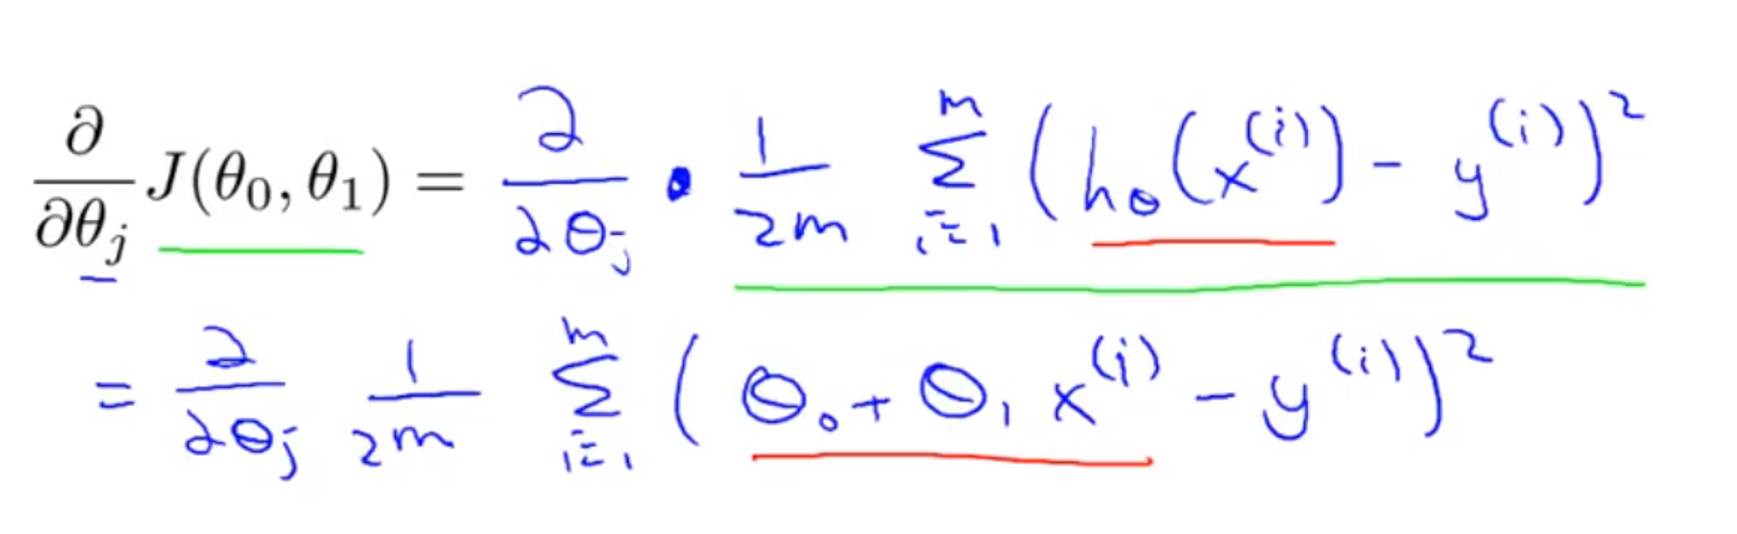 ∂/∂θ_j J(θ_0, θ_1) = ∂/∂θ_j · 1/2m Σ_{i=1}^{m} (h_θ(x^{(i)}) - y^{(i)})^2
= ∂/∂θ_j 1/2m Σ_{i=1}^{m} (θ_0 + θ_1 x^{(i)} - y^{(i)})^2